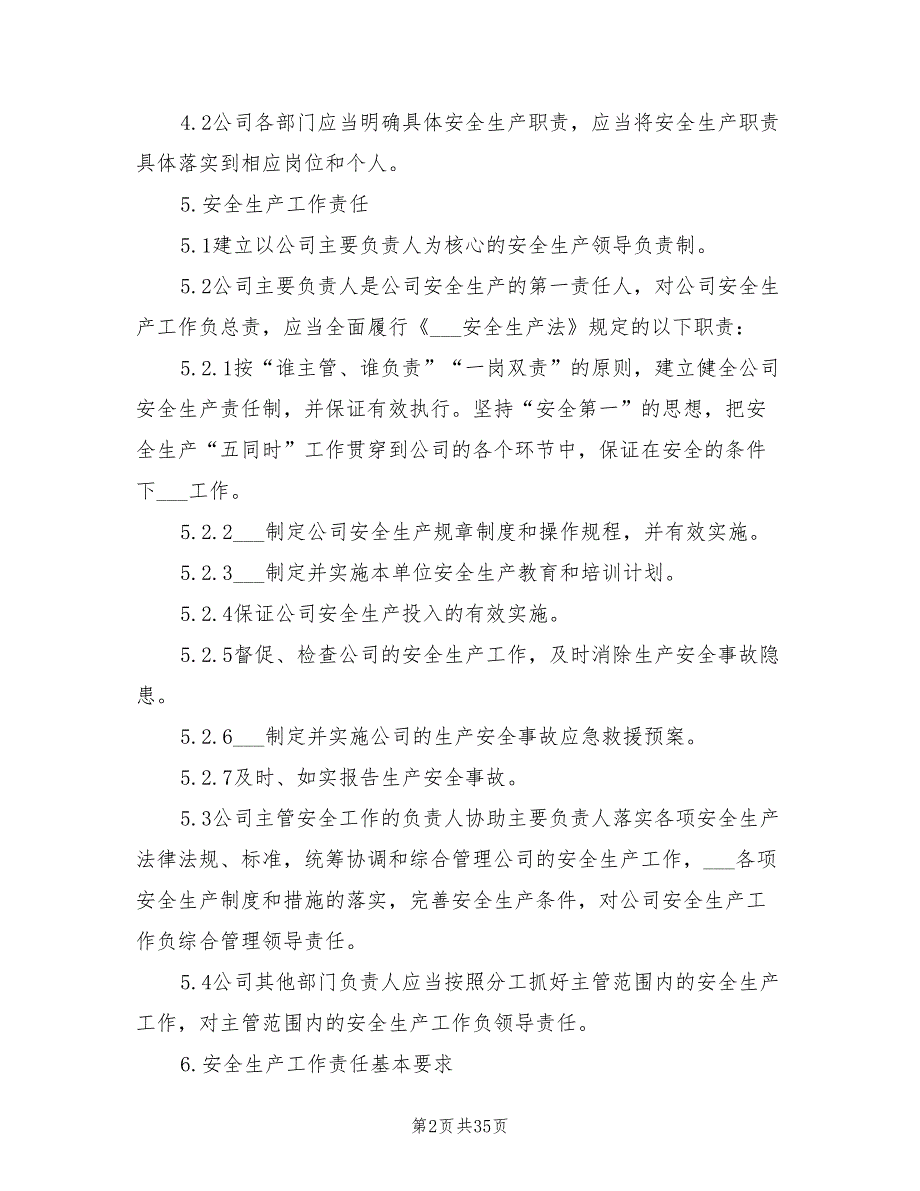 4.2公司各部门应当明确具体安全生产职责，应当将安全生产职责
具体落实到相应岗位和个人。
5.安全生产工作责任
5.1建立以公司主要负责人为核心的安全生产领导负责制。
5.2公司主要负责人是公司安全生产的第一责任人，对公司安全生
产工作负总责，应当全面履行《___安全生产法》规定的以下职责：
5.2.1按“谁主管、谁负责”“一岗双责”的原则，建立健全公司
安全生产责任制，并保证有效执行。坚持“安全第一”的思想，把安
全生产“五同时”工作贯穿到公司的各个环节中，保证在安全的条件
下___工作。
5.2.2___制定公司安全生产规章制度和操作规程，并有效实施。
5.2.3___制定并实施本单位安全生产教育和培训计划。
5.2.4保证公司安全生产投入的有效实施。
5.2.5督促、检查公司的安全生产工作，及时消除生产安全事故隐
患。
5.2.6___制定并实施公司的生产安全事故应急救援预案。
5.2.7及时、如实报告生产安全事故。
5.3公司主管安全工作的负责人协助主要负责人落实各项安全生产
法律法规、标准，统筹协调和综合管理公司的安全生产工作，___各项
安全生产制度和措施的落实，完善安全生产条件，对公司安全生产工
作负综合管理领导责任。
5.4公司其他部门负责人应当按照分工抓好主管范围内的安全生产
工作，对主管范围内的安全生产工作负领导责任。
6.安全生产工作责任基本要求
第2页共35页